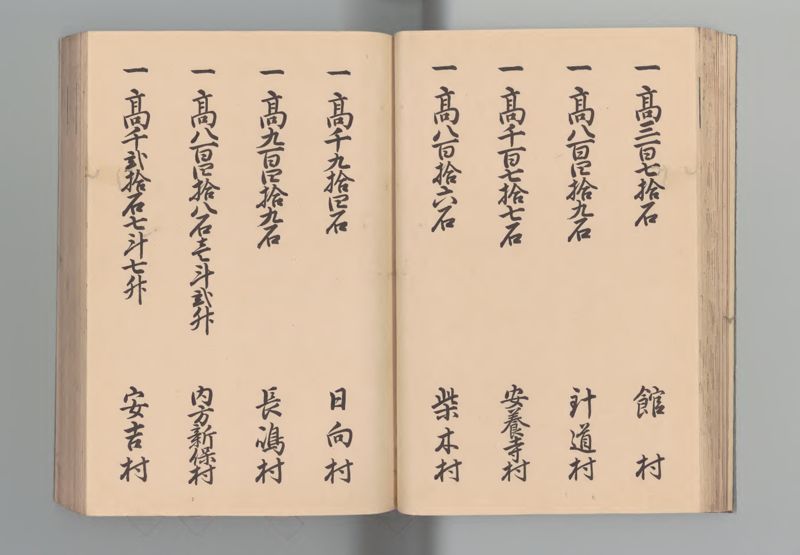 一 髙三百七拾石 館村
一 髙八百四拾九石 針道村
一 髙千百七拾七石 安養寺村
一 髙八百拾六石 柴木村
一 髙千九拾四石 日向村
一 髙九百四拾九石 長嶋村
一 髙八百四拾八石壱斗弐升 内方新保村
一 髙千弐拾石七斗七升 安吉村